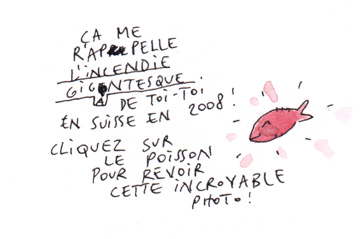 ÇA ME
RAPPELLE
L'INCENDIE
GIGANTESQUE
DE TOI-TOI
EN SUISSE EN 2008!
CLIQUEZ SUR
LE POISSON
POUR REVOIR
CETTE INCROYABLE
PHOTO!